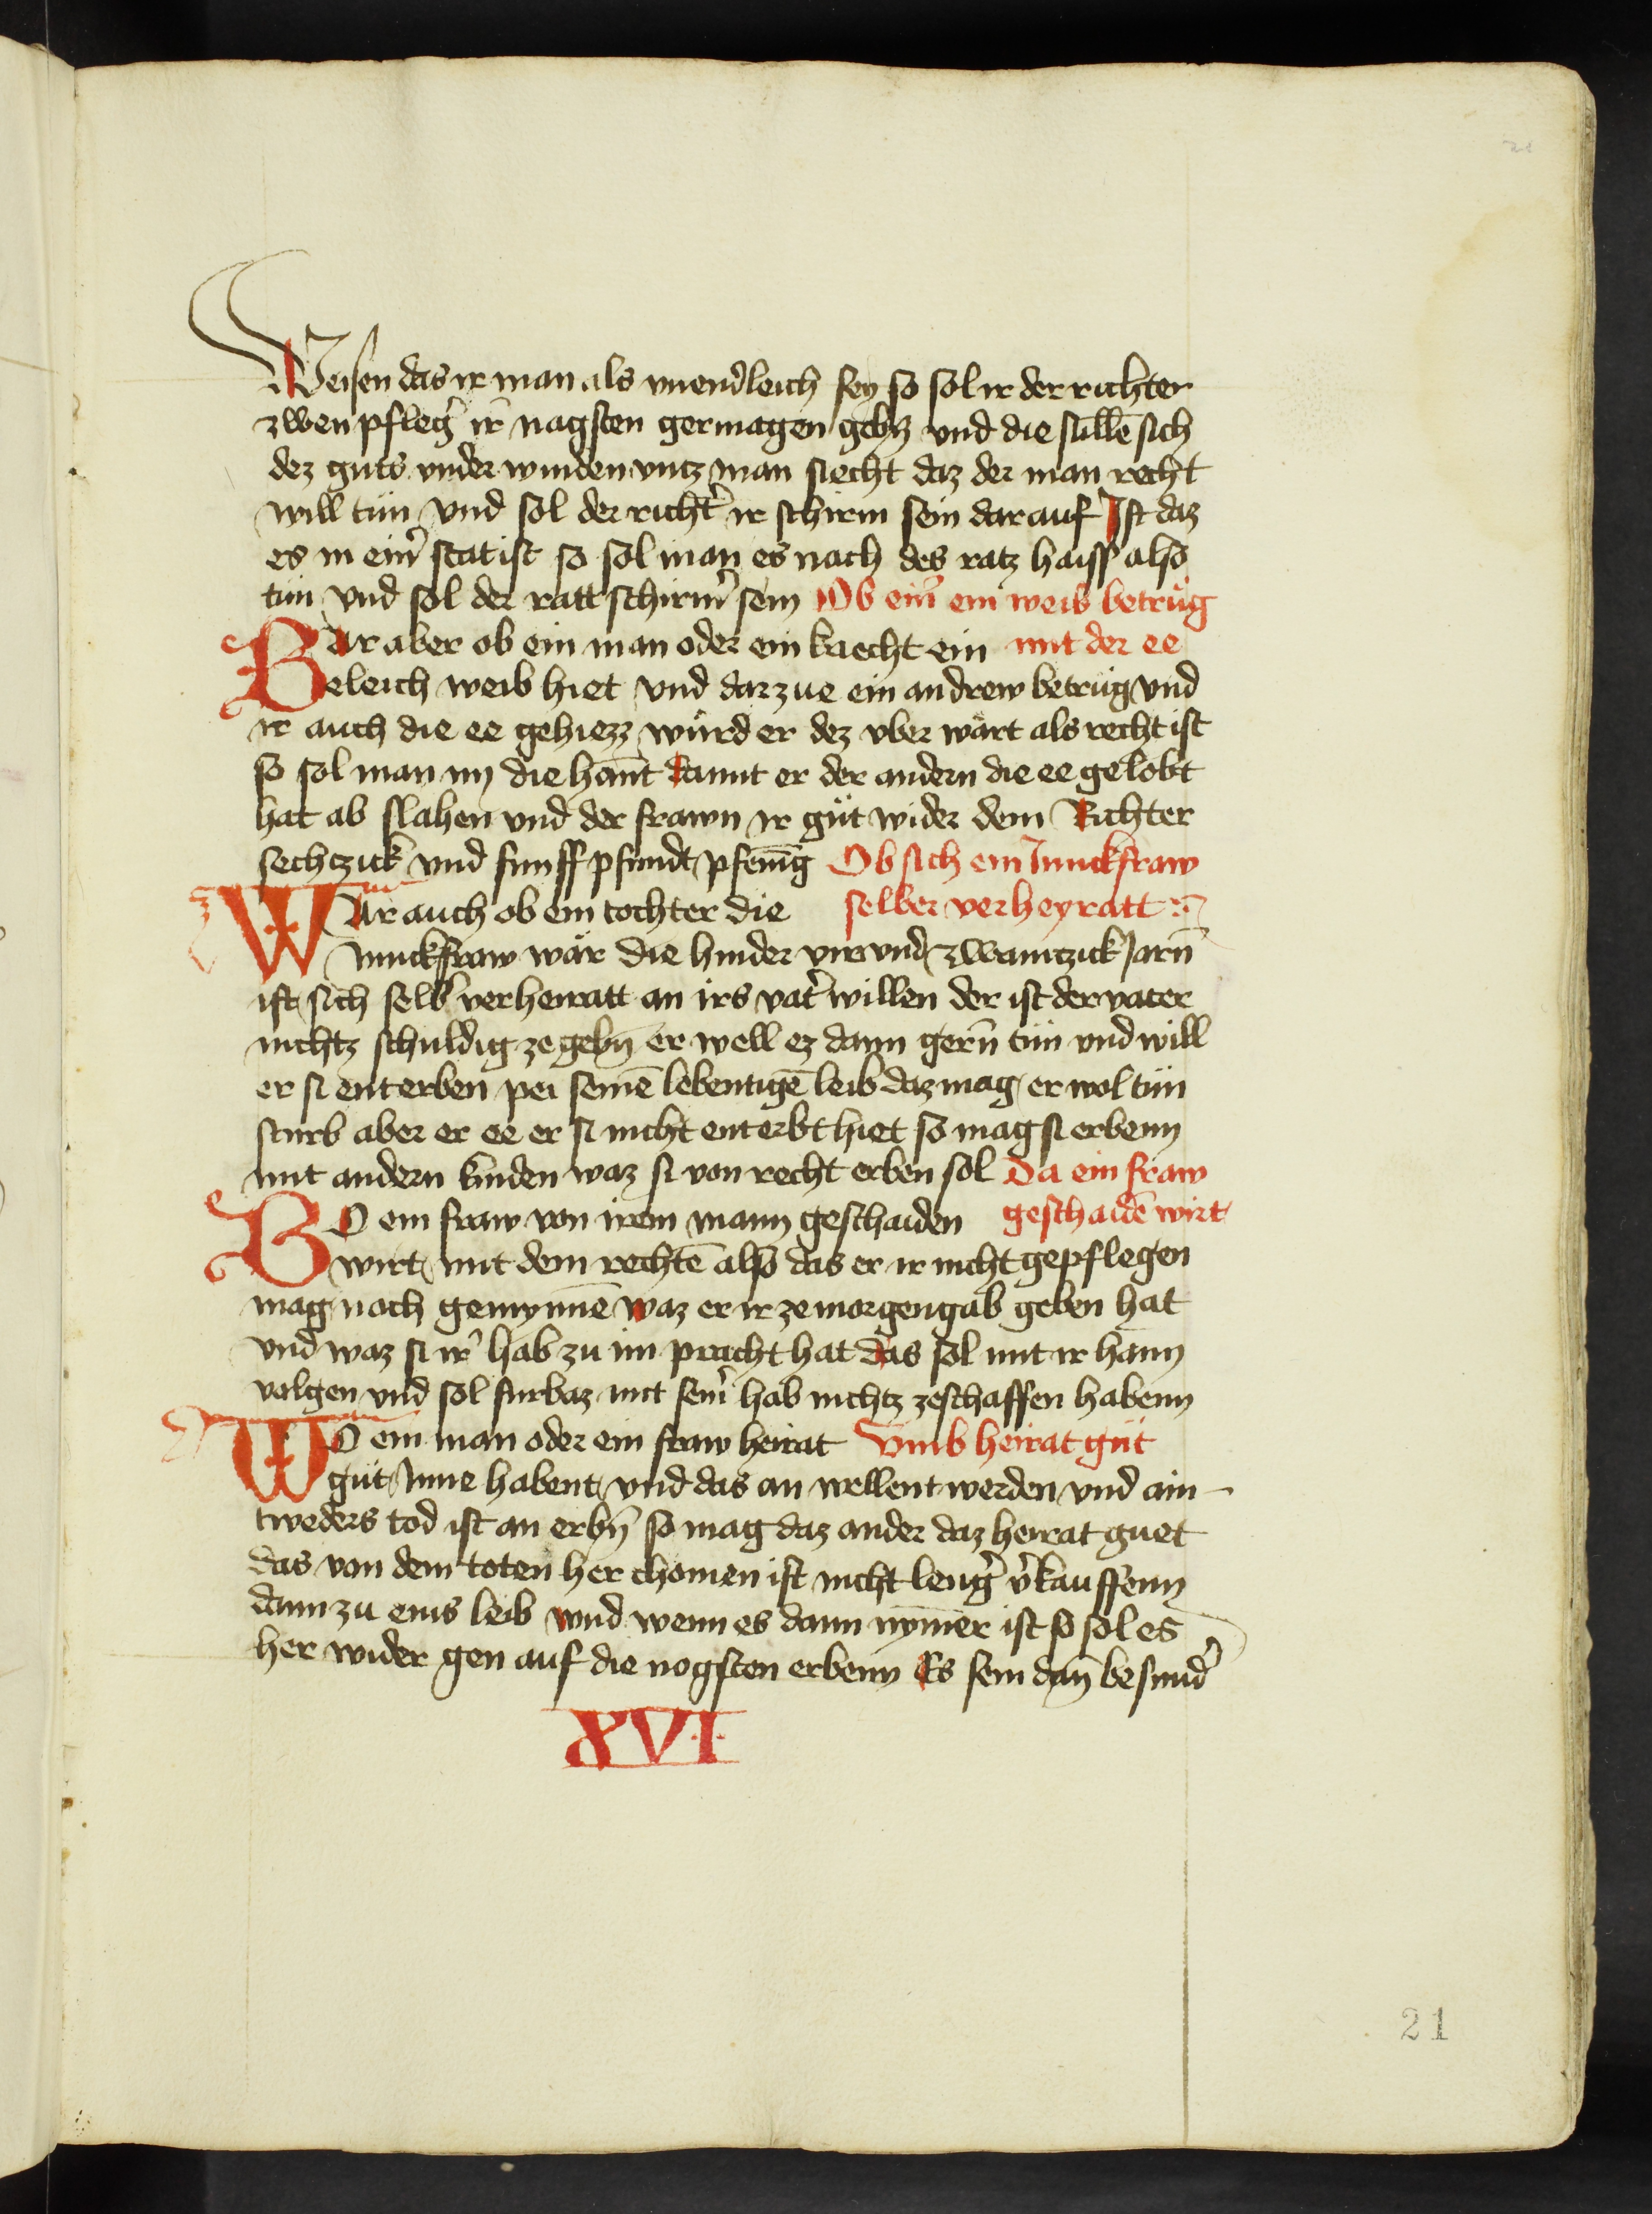 Weisen das ir man als vnendleich sey so sol ir der richter
zwen pfleg̉ ir̄ nagsten germagen gebn̄ vnd die sullē sich
dez guts vnder winden vntz man siecht daz der man recht
will tün vnd sol der richt̉ ir schirm sein dar auf Ist daz
es in ein̉ stat ist so sol man es nach des ratz haiss also
tün vnd sol der ratt schirm̉ sein Ob ein̉ ein weib betrüg
Bar aber ob ein man oder ein knecht ein mit der ee
eleich weib hiet vnd dar zue ein andrew betrüg vnd
ir auch die ee gehiezz würd er dez vber wärt als recht ist
so sol man im die hant damit er der andern die ee gelobt
hat ab slahen vnd der frawn ir güt wider dem Richter
sechtzick vnd funff pfundt pfenīg Ob sich ein Junckfraw
War auch ob ein tochter die selber verheyratt
Junckfraw wär die hinder vir vnd zwaintzick Jarn̄
ist sich selb̉ verheiratt an irs vat̉ willen der ist der vater
nichtz schuldig ze gebn̄ er well ez dann gern̄ tün vnd will
er si enterben pei seinē lebentigē leib daz mag er wol tün
sturb aber er ee er si nicht enterbt hiet so mag si erbenn
mit andern kinden waz si von recht erben sol Da ein fraw
BO ein fraw von irem mann geschaiden geschaidē wirt
wirt mit dem rechtē also das er ir nicht gepflegen
mag noch gemynnē waz er ir ze morgengab geben hat
vnd waz si ir̉ hab zu im pracht hat das sol mit ir hann
volgen vnd sol furbaz mit sein̉ hab nichtz ze schaffen habenn
WO ein man oder ein fraw heirat Vmb heirat güt
güt Inne habent vnd das an wellent werden vnd ain
tweders tod ist an erbn̄ so mag daz ander daz heirat guet
das von dem toten her chomen ist nicht leng̉ v̉kauffenn
dann zu eins leib vnd wenn es dann nym̄er ist so sol es
her wider gen auf die nogsten erbenn Es sein dan̄ besund̉
XVI
21